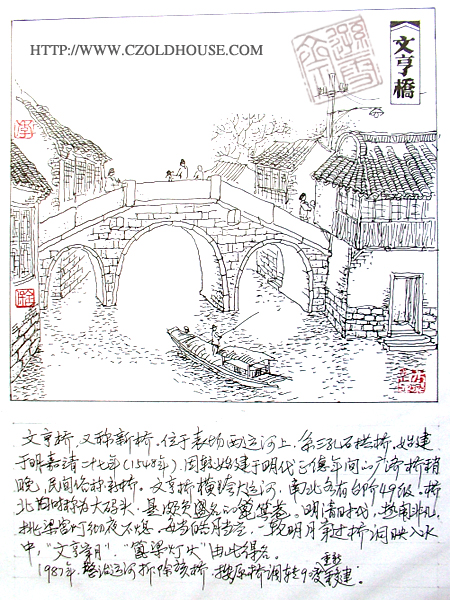 HTTP://WWW.CZOLDHOUSE.COM
文亨橋
文亨桥,又称新桥,位于表场西运河上,系三孔石拱桥,始建
于明嘉靖二十七年(1548年),因较始建于明代正德年间的广济桥稍
晚,民间俗称新桥。文亨桥横跨大运河,南北各有台阶49级,桥
北旧时称为大码头,是
明清时期,热闹非凡,
挑梁宫灯彻夜不熄,每当皓月当空,一轮明月穿过桥洞映入水
中,“文亨穿月”,“篦梁灯火”由此得名。
1987年,整治运河拆除该桥,按原桥调转90度重新建。